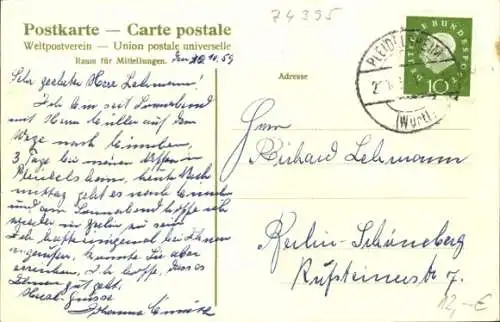 74395
Postkarte — Carte postale
Weltpostverein — Union postale universelle
Raum für Mitteilungen.
Adresse
DEUTSCHE BUNDESPOST
10
PLEIDELSHEIM
(Württ.)
den 10.59
Sehr geehrter Herr Lehmann!
Ich bin seit Sonnabend
mit Herrn Müller auf dem
Wege nach
3 Tage bei meinen in
Pleidelsheim, heute Nach
mittag geht es nach
und am Sonnabend hoffe ich
wieder in Berlin zu sein.
Ich habe einigemal bei Ihnen
angerufen, konnte Sie aber
erreichen. Ich hoffe, dass es
Ihnen gut geht.
Herzl. Grüsse
Johanna
Herrn
Richard Lehmann
Berlin-Schöneberg
Kufsteinerstr. 7
12,-€